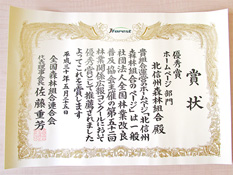 Forest
賞状
優秀賞
ホームページ部門
北信州森林組合 殿
貴組合運営のホームページ「北信州
森林組合のページ」は一般
社団法人全国林業改良
普及協会主催の第五十二回
林業関係広報コンクールにおいて
優秀賞として推薦されました
よってこれを賞します
平成三十年五月二十五日
全国森林組合連合会
代表理事会長 佐藤重芳